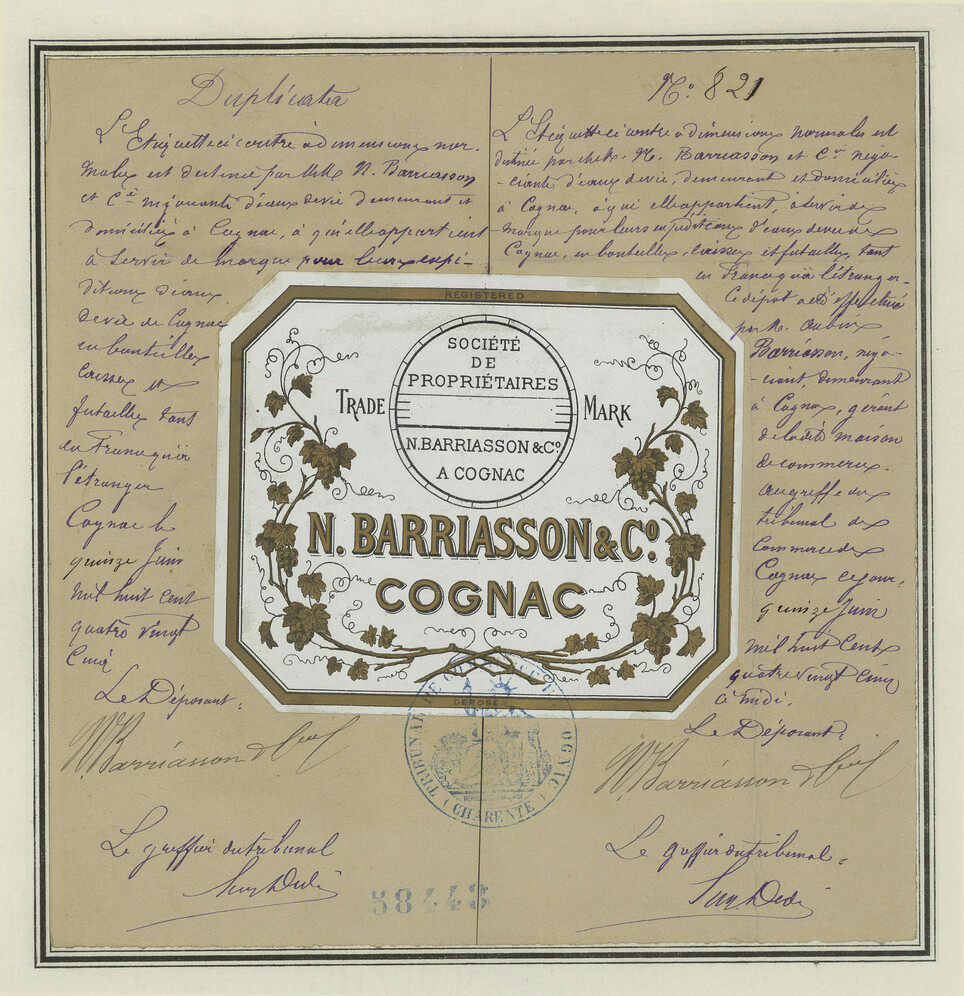 Duplicata
L'Etiquette ci contre à dimensions nor-
males est destinée par MM N. Barriasson
et Cie négociants d'eaux de vie demeurant et
domiciliés à Cognac, à qui elle appartient
à servir de marque pour leurs expé-
ditions d'eaux
de vie de Cognac
en bouteilles
caisses et
futailles tant
en France qu'à
l'étranger
Cognac le
quinze Juin
mil huit cent
quatre vingt
Cinq
Le Déposant:
N. Barriasson &
Le greffier du tribunal
No. 821
L'Etiquette ci contre à dimensions normales est
destinée par MM. N. Barriasson et Cie négo-
-ciants d'eaux de vie, demeurant et domiciliés
à Cognac, à qui elle appartient, à servir de
marque pour leurs expéditions d'eaux de vie de
Cognac, en bouteilles, caisses et futailles, tant
en France qu'à l'étranger.
Ce dépôt a été effectué
par M. Aubin
Barriasson, négo-
-ciant, demeurant
à Cognac, gérant
de la dite maison
de commerce.
au greffe du
tribunal de
Commerce de
Cognac ce jour,
quinze Juin
mil huit Cent
quatre vingt Cinq
à midi.
Le Déposant:
N. Barriasson &
Le greffier du tribunal
REGISTERED
SOCIÉTÉ
DE
PROPRIÉTAIRES
TRADE MARK
N. BARRIASSON & Co.
A COGNAC
N. BARRIASSON & Co.
COGNAC
DÉPOSÉ
TRIBUNAL DE COMMERCE COGNAC
(CHARENTE)
58443